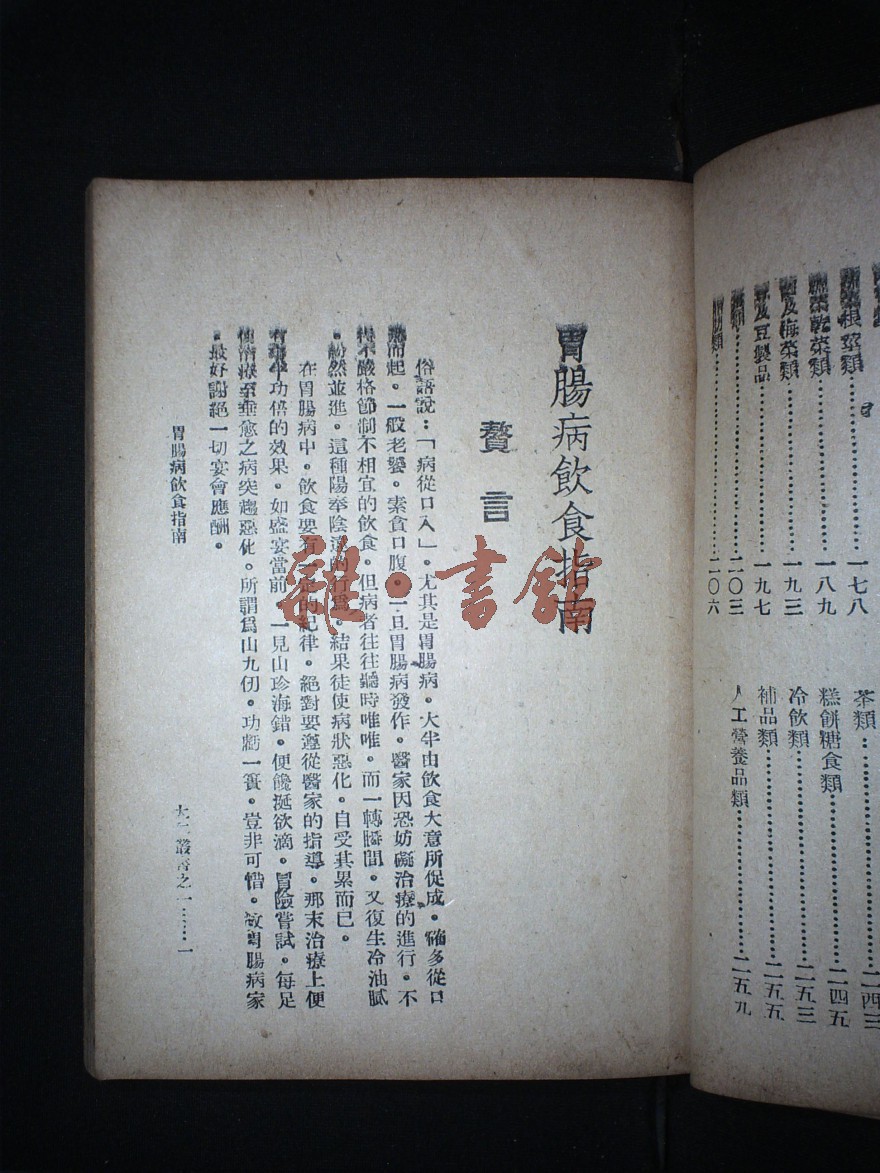 類…………………一七八
菜乾菜類…………一八九
及海菜類…………一九三
及豆製品…………一九七
類…………………二〇三
類…………………二〇六
茶類…………………二四三
糕餅糖食類…………二四五
冷飲類………………二五三
補品類………………二五五
人工營養品類………二五九
胃腸病飲食指南
贅言
俗語說：「病從口入」。尤其是胃腸病，大半由飲食大意所促成。確多從口
而起。一般老饕，素貪口腹。一旦胃腸病發作。醫家因恐妨礙治療的進行。不
得不嚴格節制不相宜的飲食。但病者往往聽時唯唯。而一轉瞬間。又復生冷油膩
。紛然並進。這種陽奉陰違的行爲。結果徒使病狀惡化。自受其累而已。
在胃腸病中。飲食要有一定的紀律。絕對要遵從醫家的指導。那末治療上便
有事半功倍的效果。如盛宴當前。一見山珍海錯。便饞涎欲滴。冒險嘗試。每足
使治療至垂愈之病突趨惡化。所謂爲山九仞。功虧一簣。豈非可惜。故胃腸病家
。最好謝絕一切宴會應酬。
胃腸病飲食指南
叢書之一……一
雜·書館